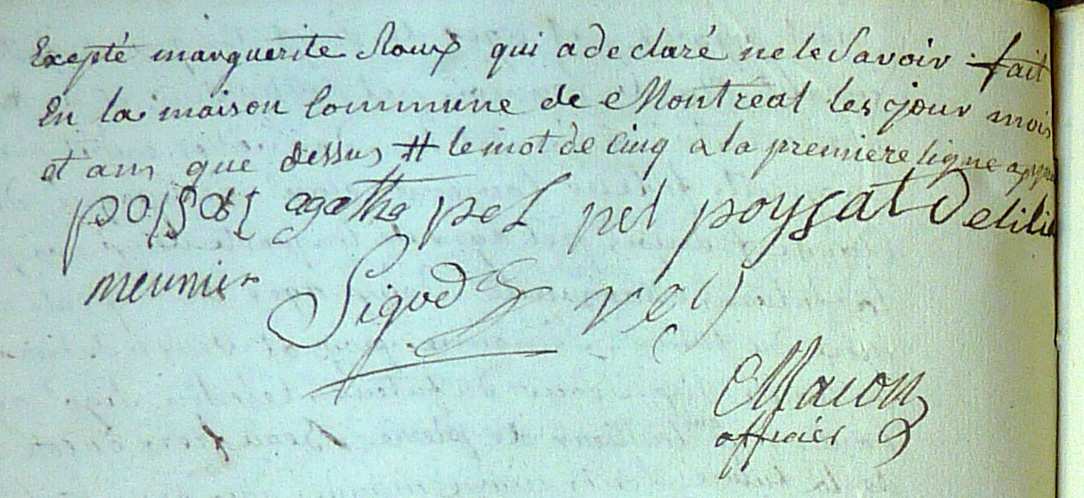 Excepté marguerite Roux qui a declaré ne le Savoir. fait
En la maison Commune de Montréal les jour mois
et ans que dessus # le mot de Cinq a la premiere ligne
poysat agathe pel pel poysat
meunier Sigod
Macon
officier